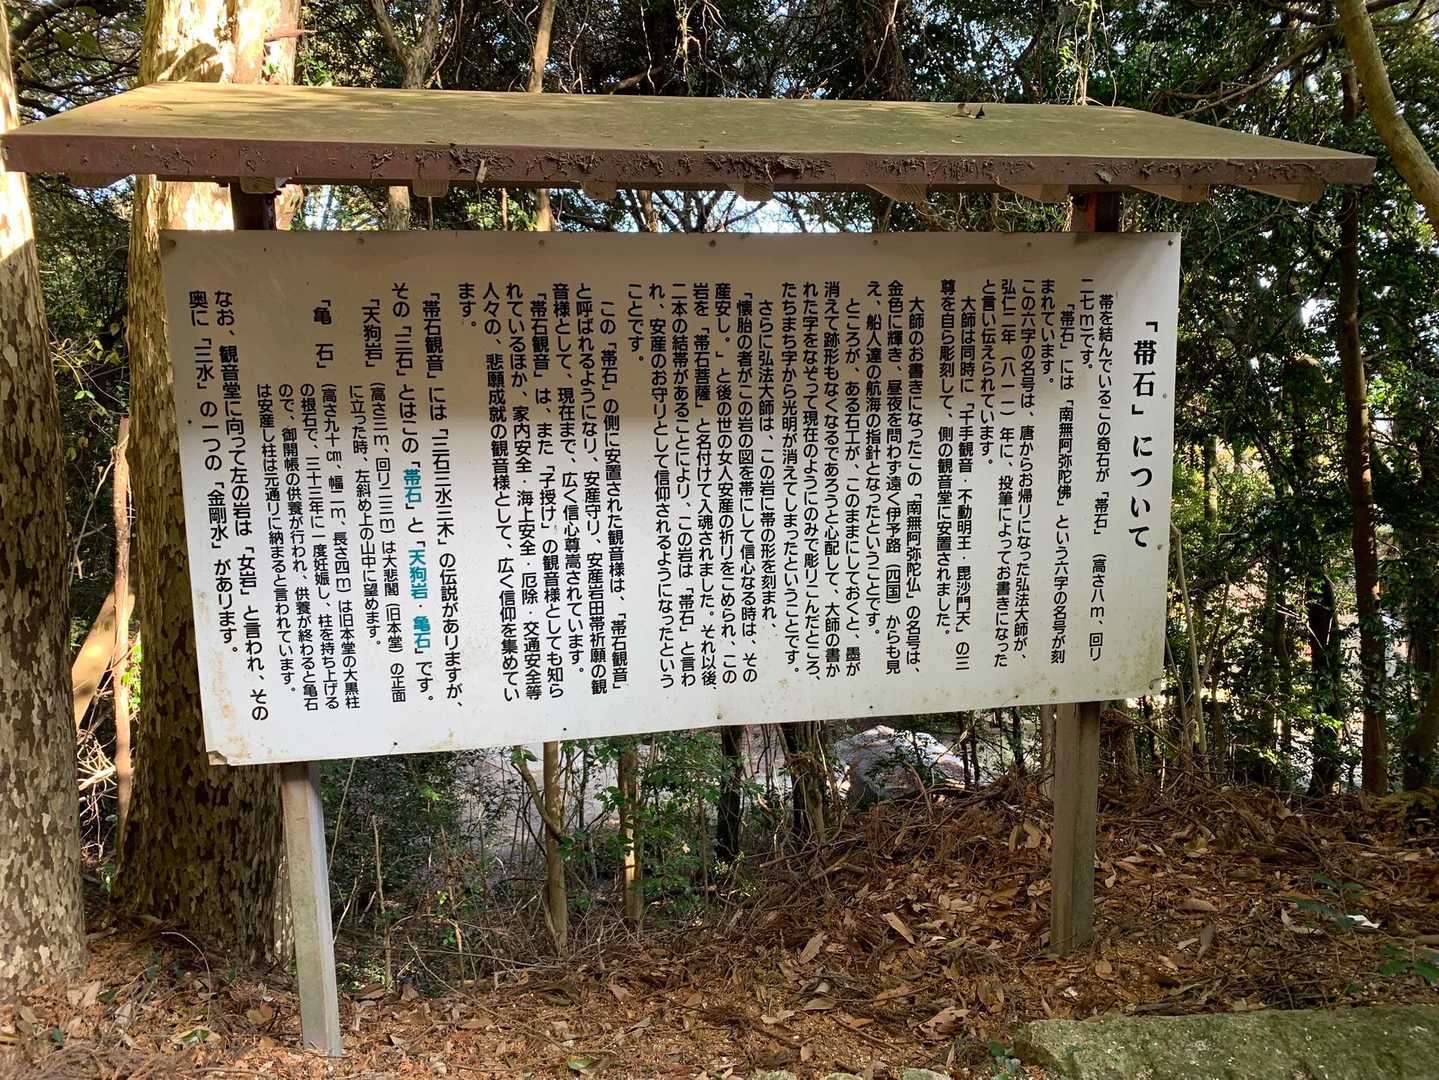 「帯石」について
帯を結んでいるこの奇石が「帯石」（高さ八ｍ、回り
二七ｍ）です。
「帯石」には「南無阿弥陀佛」という六字の名号が刻
まれています。
この六字の名号は、唐からお帰りになった弘法大師が、
弘仁二年（八一一）年に、投筆によってお書きになった
と言い伝えられています。
大師は同時に「千手観音・不動明王・毘沙門天」の三
尊を自ら彫刻して、側の観音堂に安置されました。
大師のお書きになったこの「南無阿弥陀仏」の名号は、
金色に輝き、昼夜を問わず遠く伊予路（四国）からも見
え、船人達の航海の指針となったということです。
ところが、ある石工が、このままにしておくと、墨が
消えて跡形もなくなるであろうと心配して、大師の書か
れた字をなぞって現在のようにのみで彫りこんだところ、
たちまち字から光明が消えてしまったということです。
さらに弘法大師は、この岩に帯の形を刻まれ、
「懐胎の者がこの岩の図を帯にして信心なる時は、その
産安し。」と後の世の女人安産の祈りをこめられ、この
岩を「帯石菩薩」と名付けて入魂されました。それ以後、
二本の結帯があることにより、この岩は「帯石」と言わ
れ、安産のお守りとして信仰されるようになったという
ことです。
この「帯石」の側に安置された観音様は、「帯石観音」
と呼ばれるようになり、安産守り、安産岩田帯祈願の観
音様として、現在まで、広く信心尊嵩されています。
「帯石観音」は、また「子授け」の観音様としても知ら
れているほか、家内安全・海上安全・厄除・交通安全等
人々の、悲願成就の観音様として、広く信仰を集めてい
ます。
「帯石観音」には「三石三水三木」の伝説がありますが、
その「三石」とはこの「帯石」と「天狗岩・亀石」です。
「天狗岩」（高さ三ｍ、回り二三ｍ）は大悲閣（旧本堂）の正面
に立った時、左斜め上の山中に望めます。
「亀　石」（高さ九十㎝、幅二ｍ、長さ四ｍ）は旧本堂の大黒柱
の根石で、三十三年に一度妊娠し、柱を持ち上げる
ので、御開帳の供養が行われ、供養が終わると亀石
は安産し柱は元通りに納まると言われています。
なお、観音堂に向って左の岩は「女岩」と言われ、その
奥に「三水」の一つの「金剛水」があります。